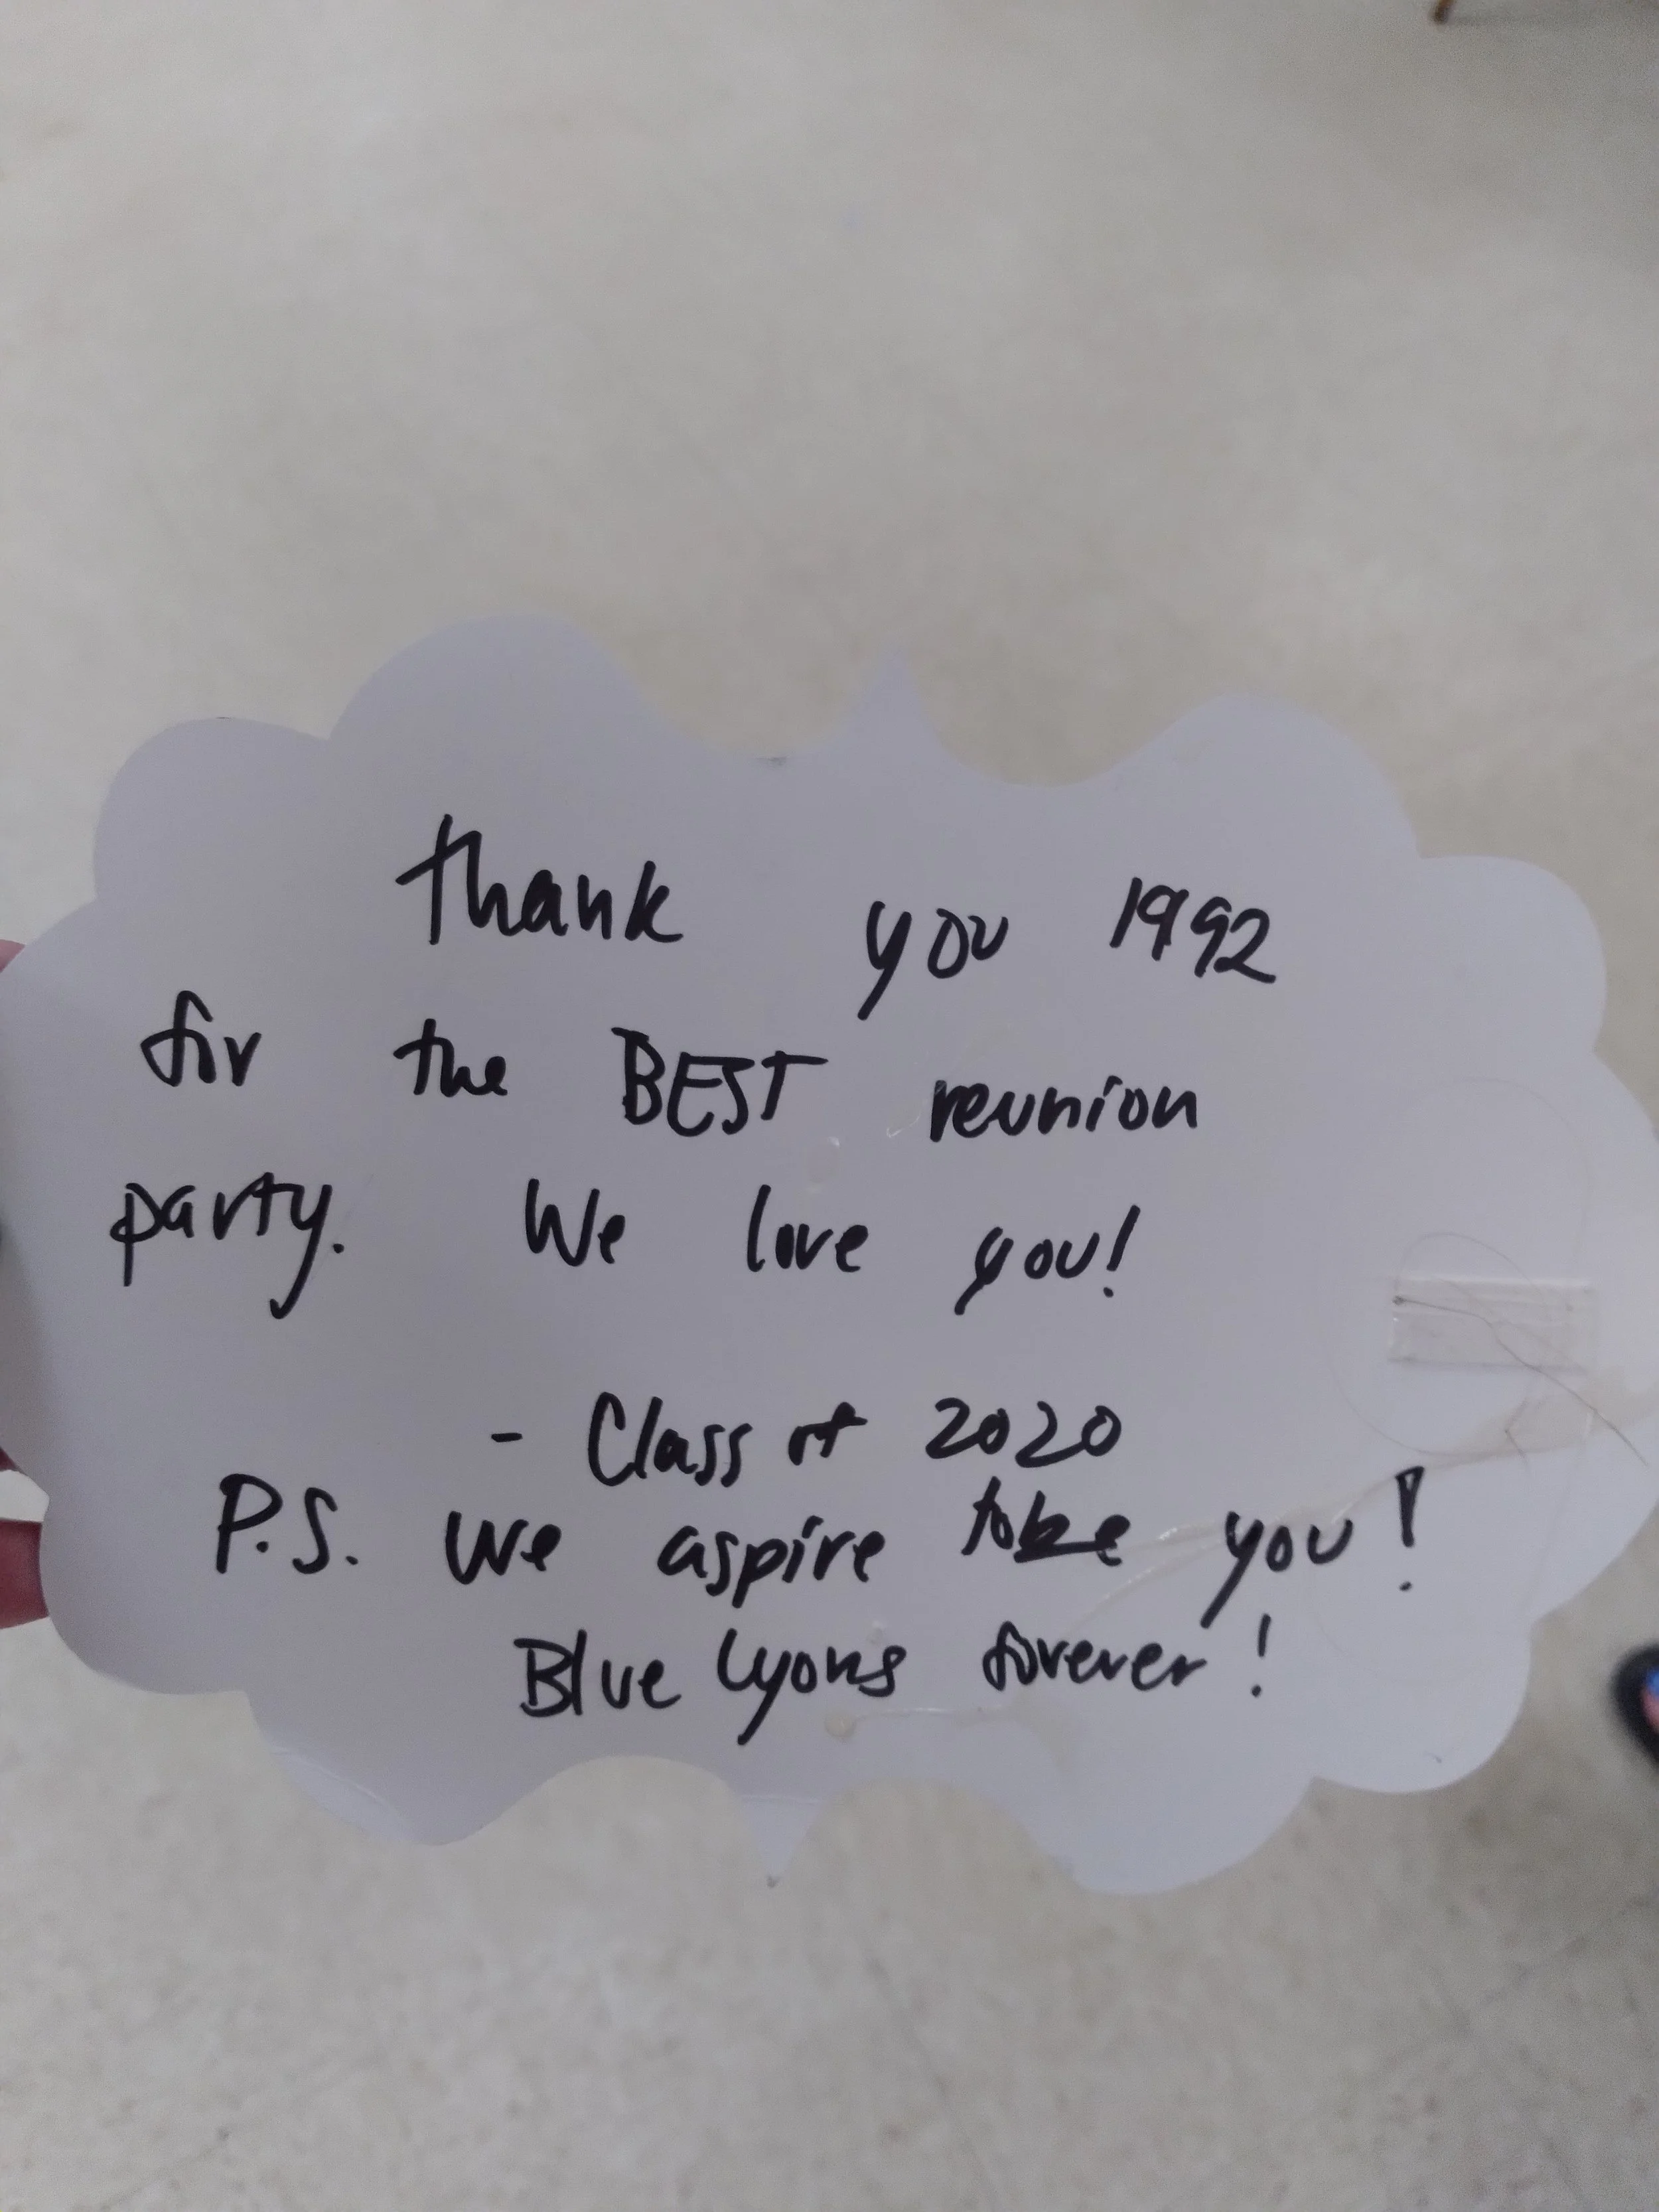 Thank you 1992
for the BEST reunion
party. We love you!
- Class of 2020
P.S. we aspire to be you!
Blue Lyons forever!